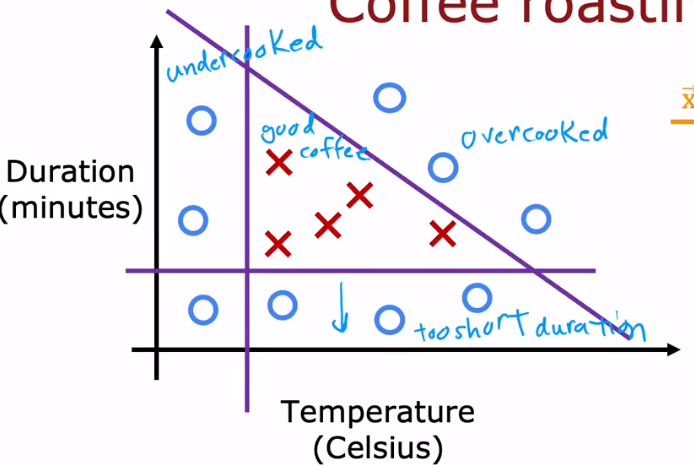 Coffee roastin
undercooked
good
coffee
overcooked
x
Duration
(minutes)
too short duration
Temperature
(Celsius)